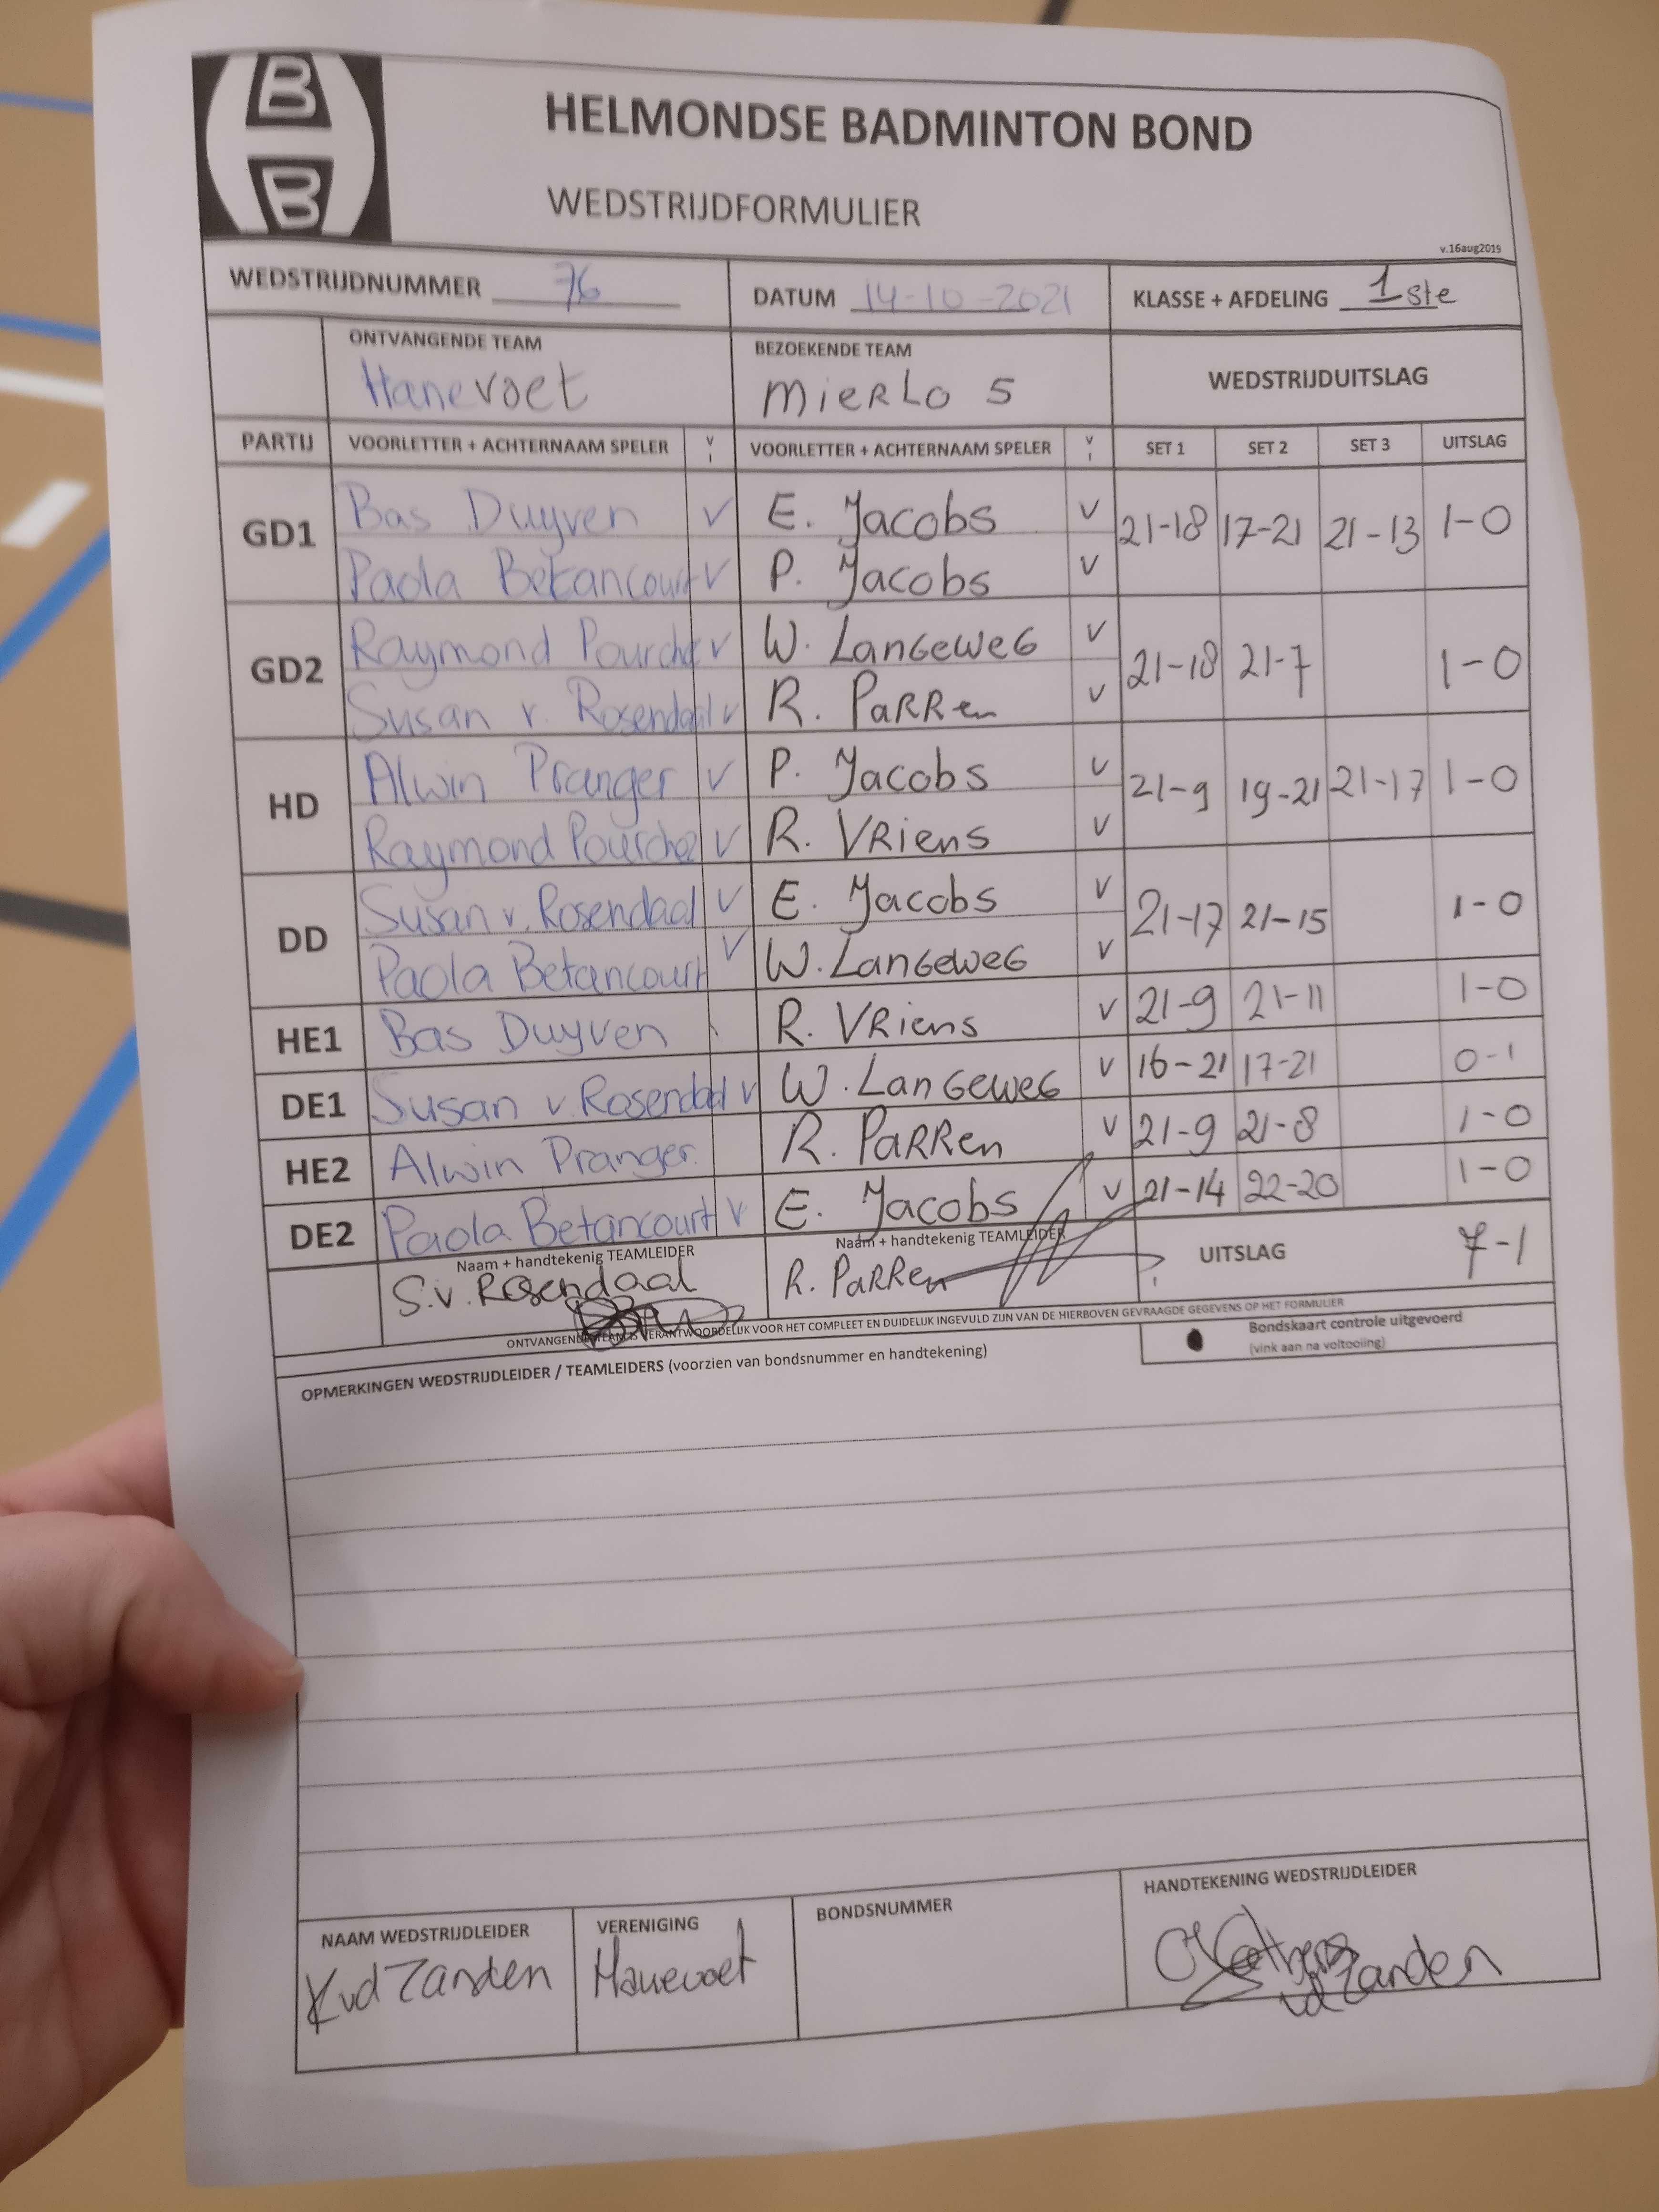 B
B
HELMONDSE BADMINTON BOND
WEDSTRIJDFORMULIER
v.16aug2019
WEDSTRIJDNUMMER 76 DATUM 14-10-2021 KLASSE + AFDELING 1ste
ONTVANGENDE TEAM BEZOEKENDE TEAM WEDSTRIJDUITSLAG
Hanevoet MieRLo 5
PARTIJ VOORLETTER + ACHTERNAAM SPELER V I VOORLETTER + ACHTERNAAM SPELER V I SET 1 SET 2 SET 3 UITSLAG
GD1 Bas Duyven V E. Jacobs V 21-18 17-21 21-13 1-0
Paola Betancourt V P. Jacobs V
GD2 Raymond V W. LanGeweG V 21-18 21-7 1-0
Susan v. Rosendaal v R. PaRRen V
HD Alwin Pranger V P. Jacobs V 21-9 19-21 21-17 1-0
Raymond V R. VRiens V
DD Susan v. Rosendaal V E. Jacobs V 21-17 21-15 1-0
Paola Betancourt V W. LanGeweG V
HE1 Bas Duyven \ R. VRiens V 21-9 21-11 1-0
DE1 Susan v. Rosendaal v W. LanGeweG V 16-21 17-21 0-1
HE2 Alwin Pranger. R. PaRRen V 21-9 21-8 1-0
DE2 Paola Betancourt V E. Jacobs V 21-14 22-20 1-0
Naam + handtekenig TEAMLEIDER Naam + handtekenig TEAMLEIDER UITSLAG 7-1
S.v. Rosendaal R. PaRRen
ONTVANGENDE TEAM IS VERANTWOORDELIJK VOOR HET COMPLEET EN DUIDELIJK INGEVULD ZIJN VAN DE HIERBOVEN GEVRAAGDE GEGEVENS OP HET FORMULIER
Bondskaart controle uitgevoerd
(vink aan na voltooiing)
OPMERKINGEN WEDSTRIJDLEIDER / TEAMLEIDERS (voorzien van bondsnummer en handtekening)
NAAM WEDSTRIJDLEIDER VERENIGING BONDSNUMMER HANDTEKENING WEDSTRIJDLEIDER
KvdZanden Hanevoet
vd Zanden